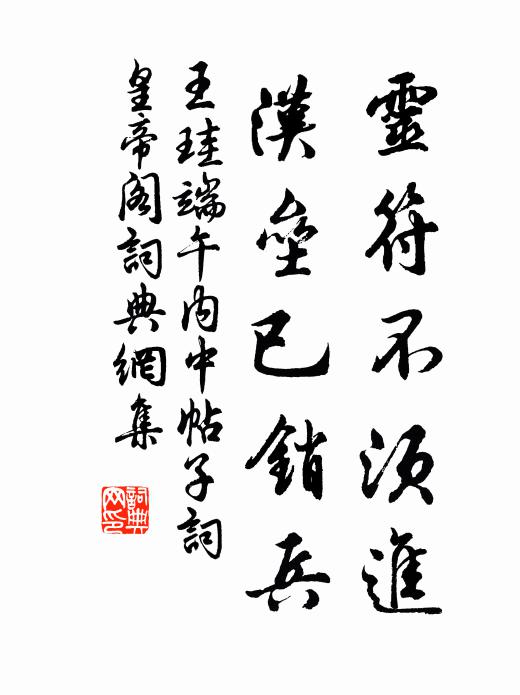 靈符不須進
漢壘已銷兵
王珪端午內中帖子詞
皇帝閣詞典網集
詞典网印